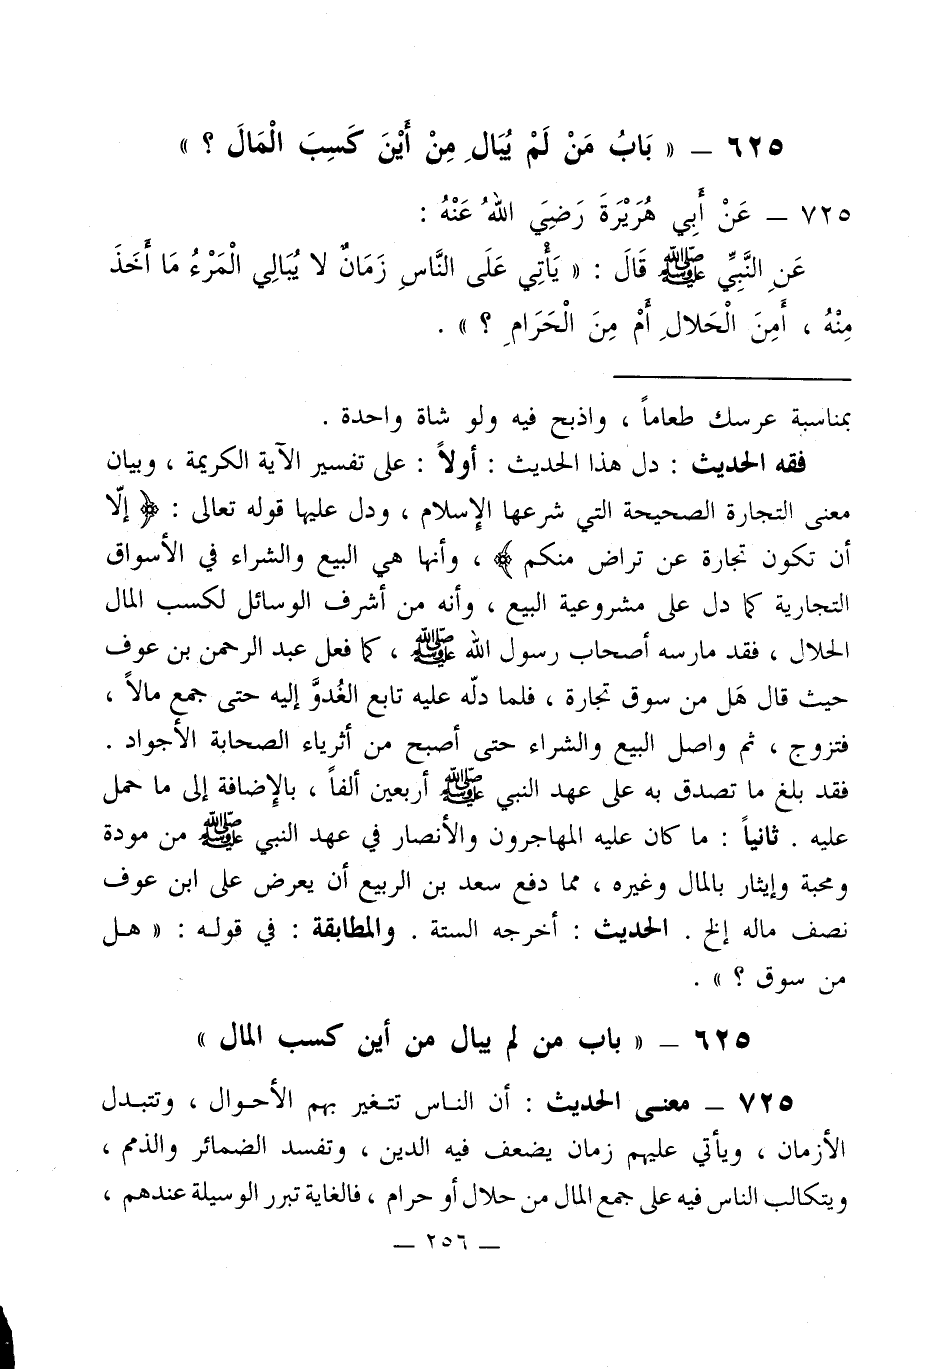 ٦٢٥ ــ « بَابُ مَنْ لَمْ يُبَالِ مِنْ أَيْنَ كَسِبَ الْمَالَ ؟ »
٧٢٥ ــ عَنْ أَبِي هُرَيْرَةَ رَضِيَ اللهُ عَنْهُ :
عَنِ النَّبِيِّ ﷺ قَالَ : « يَأْتِي عَلَى النَّاسِ زَمَانٌ لا يُبَالِي الْمَرْءُ مَا أَخَذَ
مِنْهُ ، أَمِنَ الْحَلالِ أَمْ مِنَ الْحَرَامِ ؟ » .
بمناسبة عرسك طعاماً ، واذبح فيه ولو شاة واحدة .
فقه الحديث : دل هذا الحديث : أولاً : على تفسير الآية الكريمة ، وبيان
معنى التجارة الصحيحة التي شرعها الإسلام ، ودل عليها قوله تعالى : ﴿ إلّا
أن تكون تجارة عن تراض منكم ﴾ ، وأنها هي البيع والشراء في الأسواق
التجارية كما دل على مشروعية البيع ، وأنه من أشرف الوسائل لكسب المال
الحلال ، فقد مارسه أصحاب رسول الله ﷺ ، كما فعل عبد الرحمن بن عوف
حيث قال هَل من سوق تجارة ، فلما دلّه عليه تابع الغُدوَّ إليه حتى جمع مالاً ،
فتزوج ، ثم واصل البيع والشراء حتى أصبح من أثرياء الصحابة الأجواد .
فقد بلغ ما تصدق به على عهد النبي ﷺ أربعين ألفاً ، بالإضافة إلى ما حمل
عليه . ثانياً : ما كان عليه المهاجرون والأنصار في عهد النبي ﷺ من مودة
ومحبة وإيثار بالمال وغيره ، مما دفع سعد بن الربيع أن يعرض على ابن عوف
نصف ماله إلخ . الحديث : أخرجه الستة . والمطابقة : في قوله : « هل
من سوق ؟ » .
٦٢٥ ــ « باب من لم يبال من أين كسب المال »
٧٢٥ ــ معنى الحديث : أن الناس تتغير بهم الأحوال ، وتتبدل
الأزمان ، ويأتي عليهم زمان يضعف فيه الدين ، وتفسد الضمائر والذمم ،
ويتكالب الناس فيه على جمع المال من حلال أو حرام ، فالغاية تبرر الوسيلة عندهم ،
ــ ٢٥٦ ــ